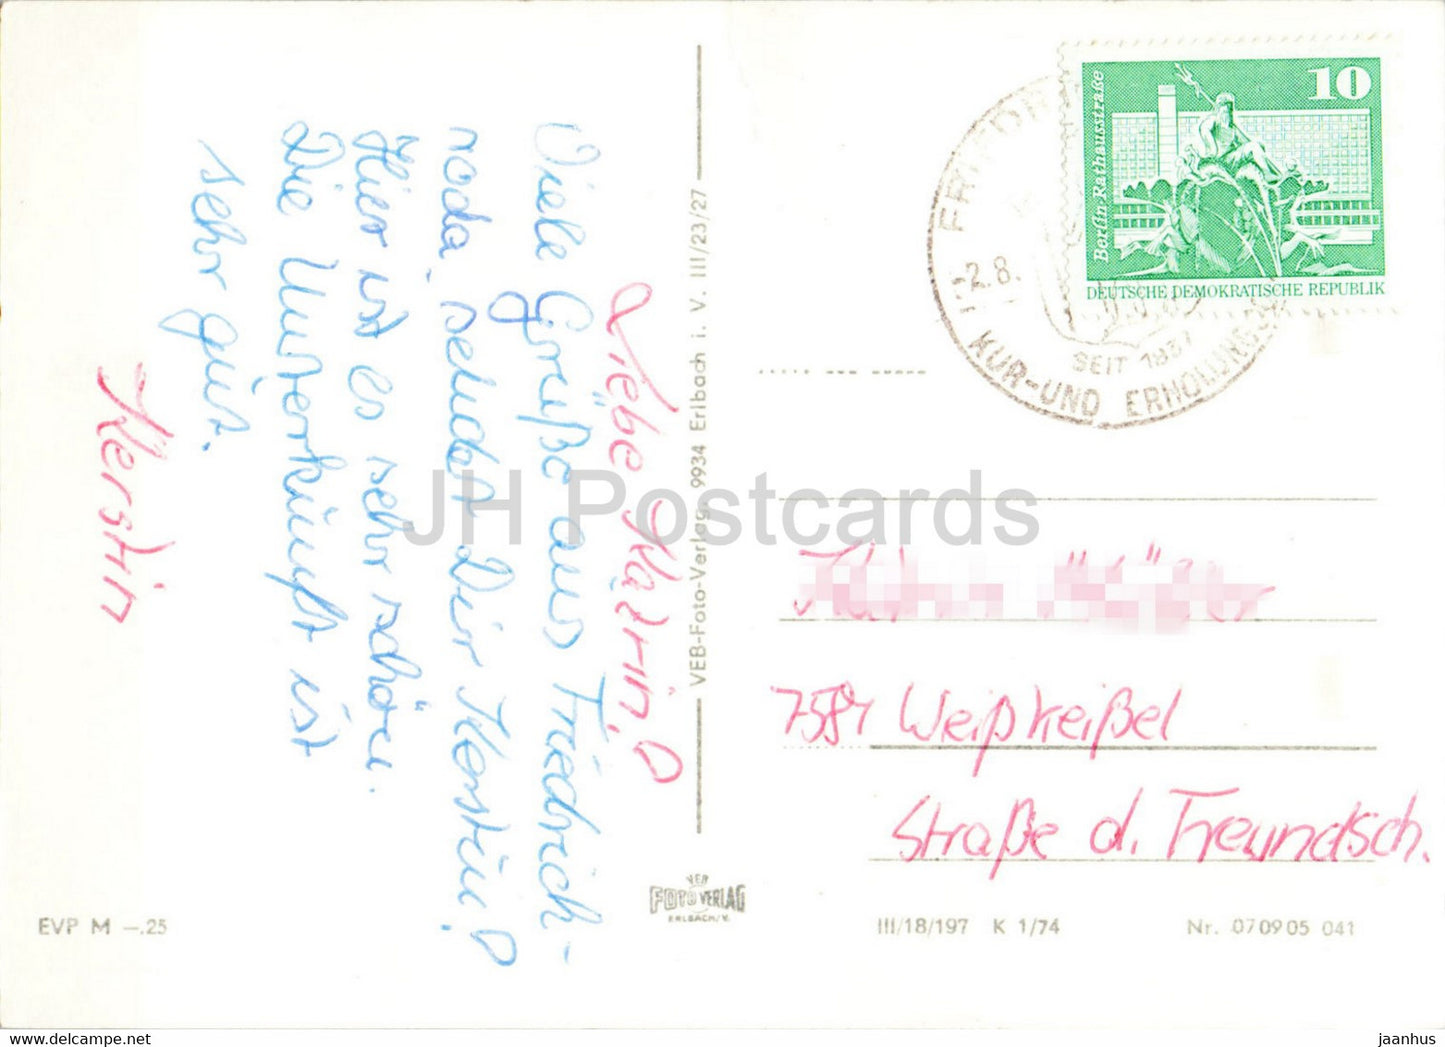 Liebe Katrin!
Viele Grüße aus Friedrich-
roda sendet Dir Kerstin!
Hier ist es sehr schön.
Die Unterkunft ist
sehr gut.
Kerstin
EVP M –.25
VEB-Foto-Verlag, 9934 Erlbach i. V. III/23/27
VEB
FOTO VERLAG
ERLBACH/V.
10
Berlin·Rathausstraße
DEUTSCHE DEMOKRATISCHE REPUBLIK
2.8.
SEIT 1837
KUR-UND ERHOLUNGS
7584 Weißkeißel
Straße d. Freundsch.
III/18/197 K 1/74
Nr. 070905 041
JH Postcards
www.delcampe.net
jaanhus